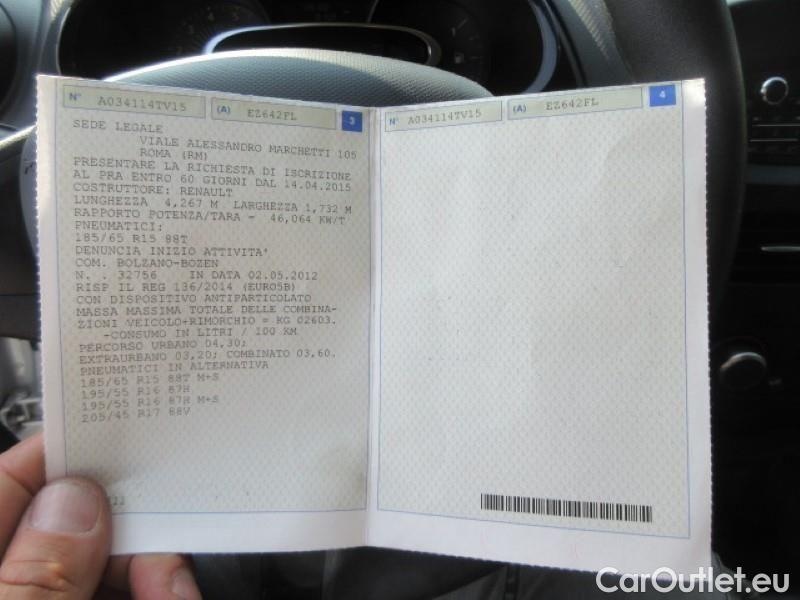 N° A034114TV15 (A) EZ642FL 3
SEDE LEGALE
VIALE ALESSANDRO MARCHETTI 105
ROMA (RM)
PRESENTARE LA RICHIESTA DI ISCRIZIONE
AL PRA ENTRO 60 GIORNI DAL 14.04.2015
COSTRUTTORE: RENAULT
LUNGHEZZA 4,267 M LARGHEZZA 1,732 M
RAPPORTO POTENZA/TARA = 46,064 KW/T
PNEUMATICI:
185/65 R15 88T
DENUNCIA INIZIO ATTIVITA'
COM. BOLZANO-BOZEN
N. . 32756 IN DATA 02.05.2012
RISP IL REG 136/2014 (EURO5B)
CON DISPOSITIVO ANTIPARTICOLATO
MASSA MASSIMA TOTALE DELLE COMBINA-
ZIONI VEICOLO+RIMORCHIO = KG 02603.
-CONSUMO IN LITRI / 100 KM
PERCORSO URBANO 04,30;
EXTRAURBANO 03,20; COMBINATO 03,60.
PNEUMATICI IN ALTERNATIVA
185/65 R15 88T M+S
195/55 R16 87H
195/55 R16 87H M+S
205/45 R17 88V
N° A034114TV15 (A) EZ642FL 4
CarOutlet.eu